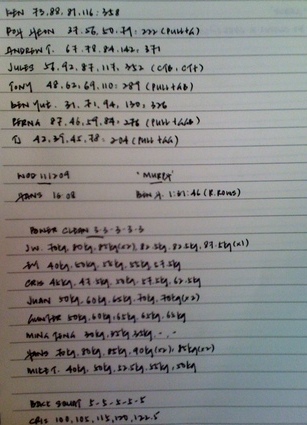 KEN 73.88.81.116: 358
POH HEON 27.56.60.79: 222 (PULL+G)
ANDREW T. 67.78.84.142; 371
JULES 56.92.87.117: 352
TONY 48.62.69.110: 289 (PULL+GB)
BEN YUE. 31.71.94.130; 326
BERNA 87.46.59.84: 276 (PULL+GB)
TJ 42.39.45.78: 204 (PULL+GG)
WOD 111209 "MURPH"
16:08 BEN A. 1:01:46 (R.ROWS)
POWER CLEAN 3-3-3-3-3
JW. 70kg, 80kg, 85kg(x2), 82.5kg, 82.5kg, 87.5kg(x1)
40kg, 50kg, 55kg, 55kg, 57.5kg
CRIS 45kg, 47.5kg, 50kg, 57.5kg, 62.5kg
JUAN 50kg, 60kg, 65kg, 70kg, 70kg(x2)
GUNTHER 50kg, 60kg, 65kg, 65kg, 65kg
MING 30kg, 35kg, 35kg, -, -
70kg, 80kg, 85kg, 90kg(x2), 85kg(x2)
MIKE T. 40kg, 50kg, 52.5kg, 55kg, 50kg
BACK SQUAT 5-5-5-5-5
CRIS 100, 105, 115, 120, 122.5